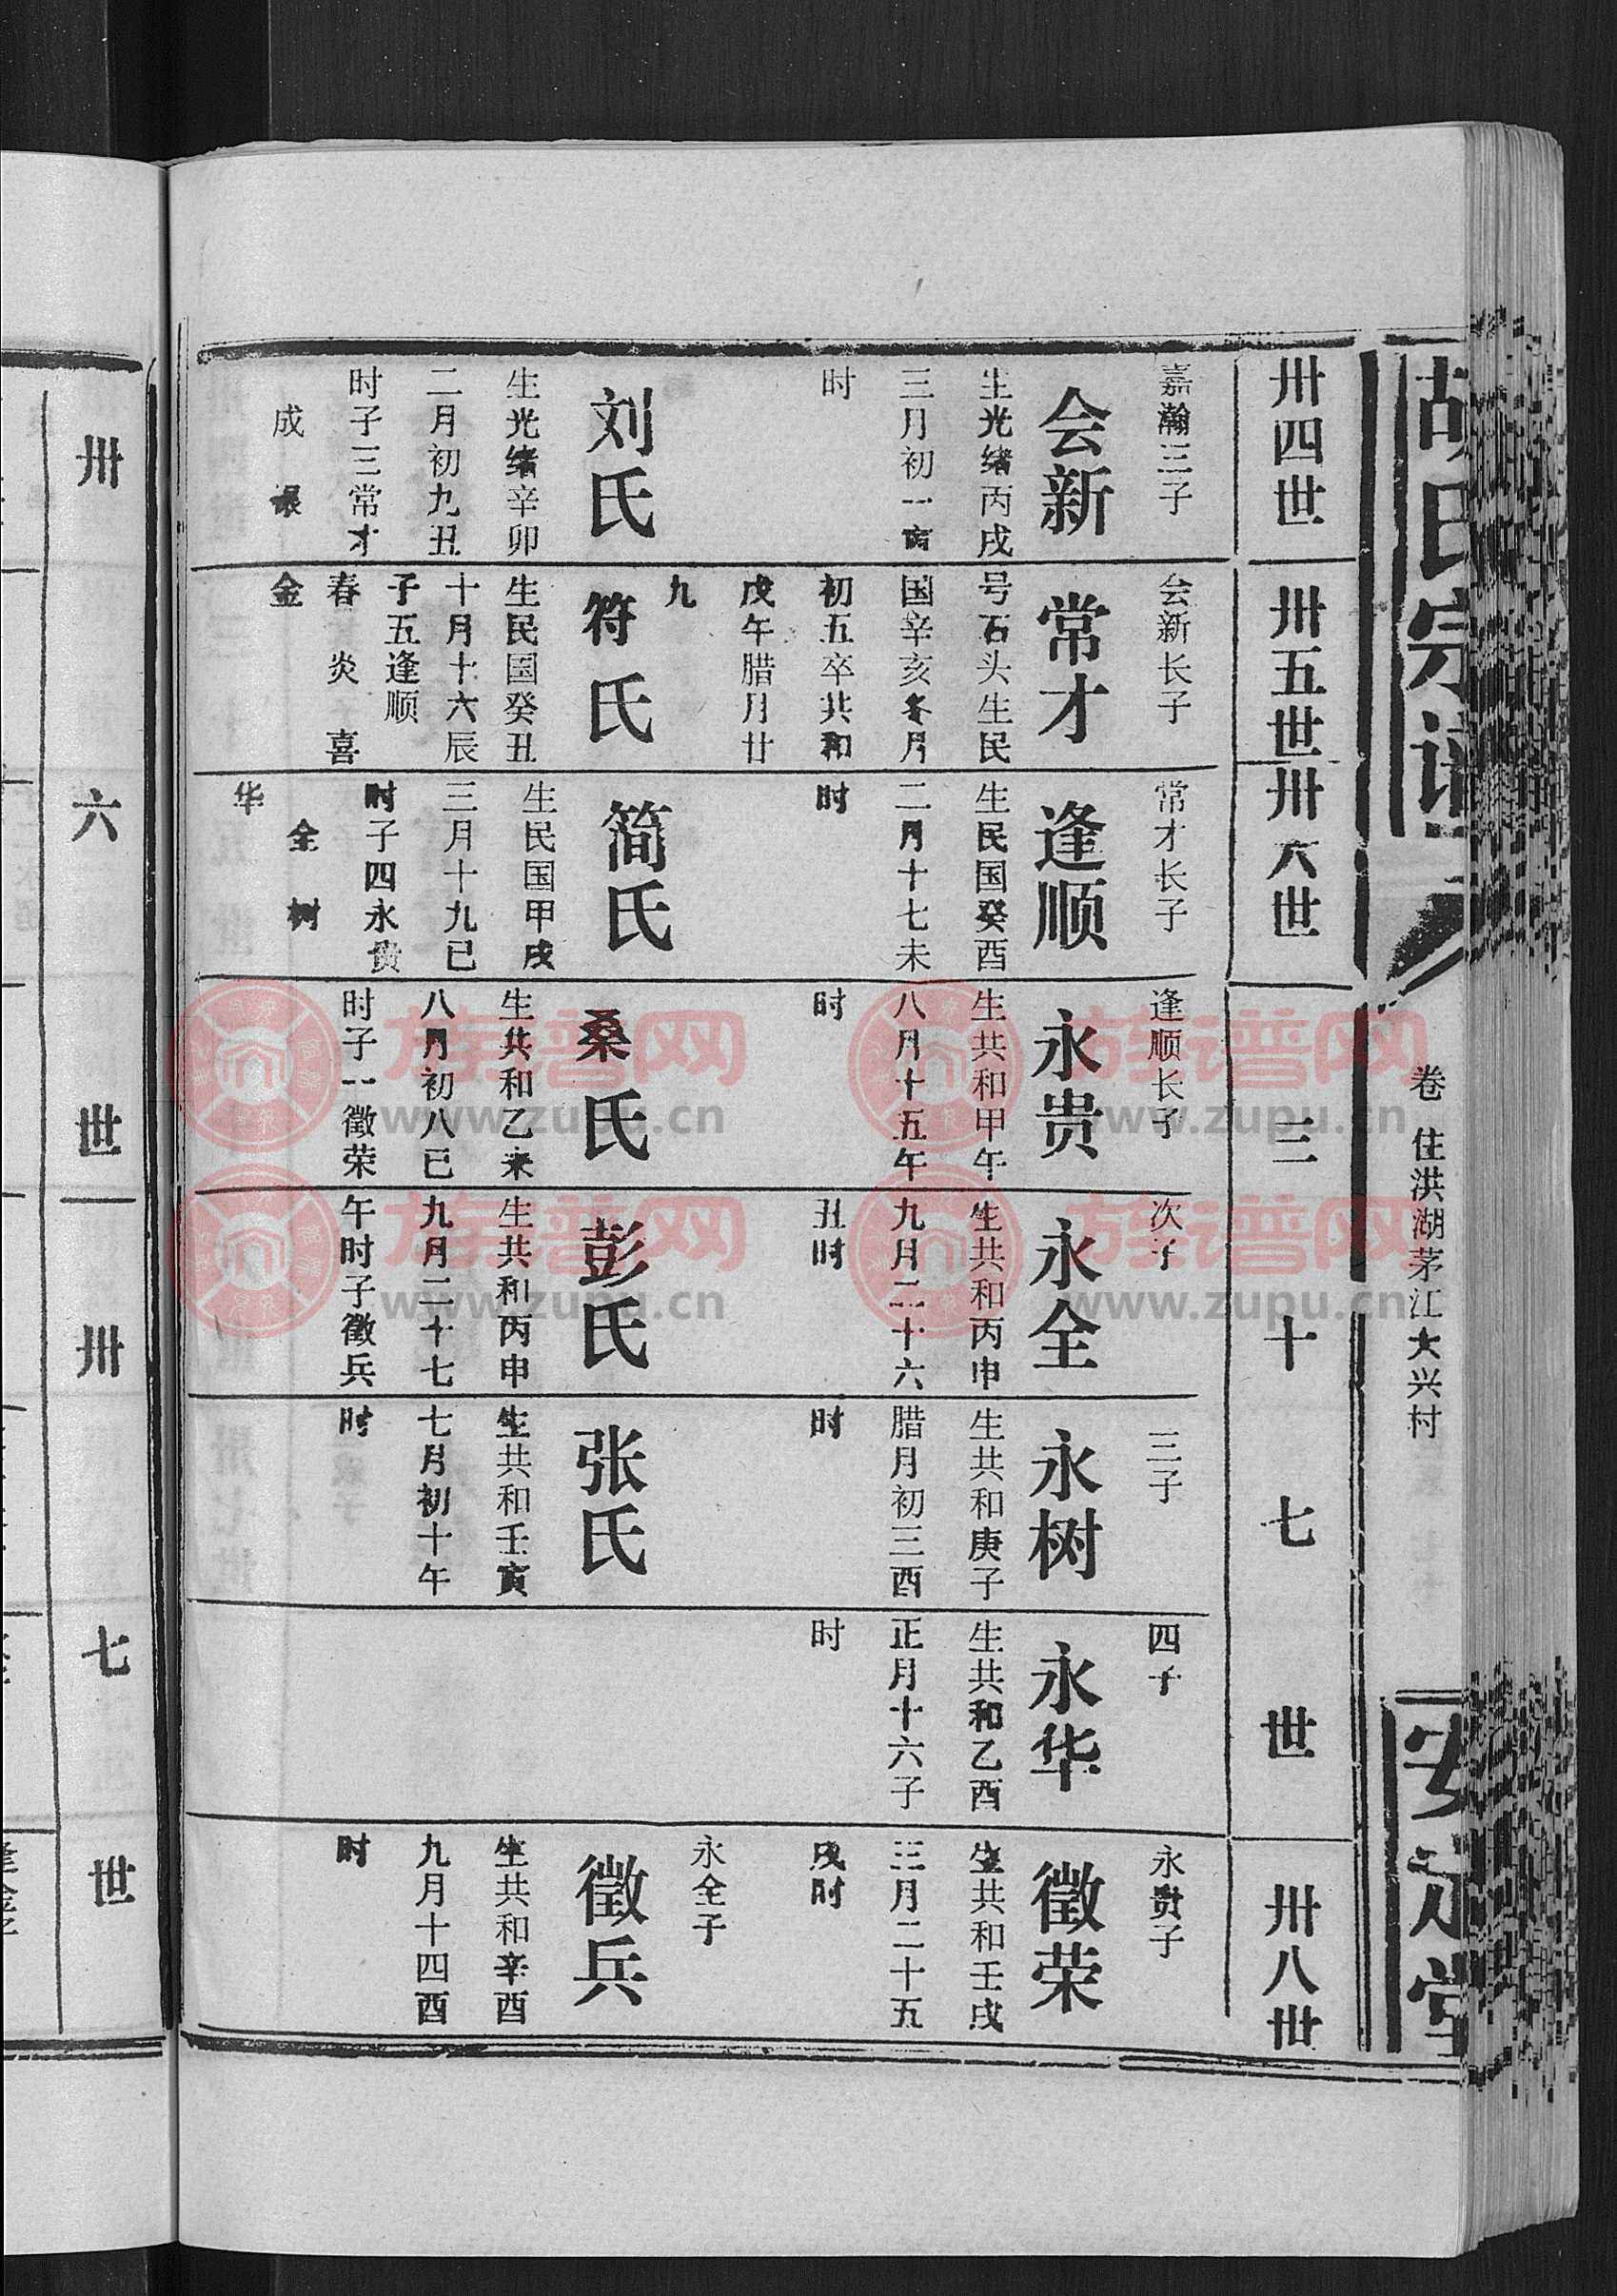 胡氏宗谱
卷 住洪湖茅江大兴村
安定堂
卅四世
卅五世
卅六世
三十七世
卅八世
嘉瀚三子
会新
生光绪丙戌
三月初一亥
时
刘氏
生光绪辛卯
二月初九丑
时子三常才
成
会新长子
常才
号石头生民
国辛亥冬月
初五卒共和
戊午腊月廿
九
符氏
生民国癸丑
十月十六辰
子五逢顺
春炎喜
金
常才长子
逢顺
生民国癸酉
二月十七未
时
简氏
生民国甲戌
三月十九巳
时子四永贵
全树
华
逢顺长子
永贵
生共和甲午
八月十五午
时
桑氏
生共和乙未
八月初八巳
时子一徵荣
次子
永全
生共和丙申
九月二十六
丑时
彭氏
生共和丙申
九月二十七
午时子徵兵
三子
永树
生共和庚子
腊月初三酉
时
张氏
生共和壬寅
七月初十午
时
四子
永华
生共和乙酉
正月十六子
时
永贵子
徵荣
生共和壬戌
三月二十五
戌时
永全子
徵兵
生共和辛酉
九月十四酉
时
卅六世
卅七世
族谱网
www.zupu.cn
族谱网
www.zupu.cn
族谱网
www.zupu.cn
族谱网
www.zupu.cn